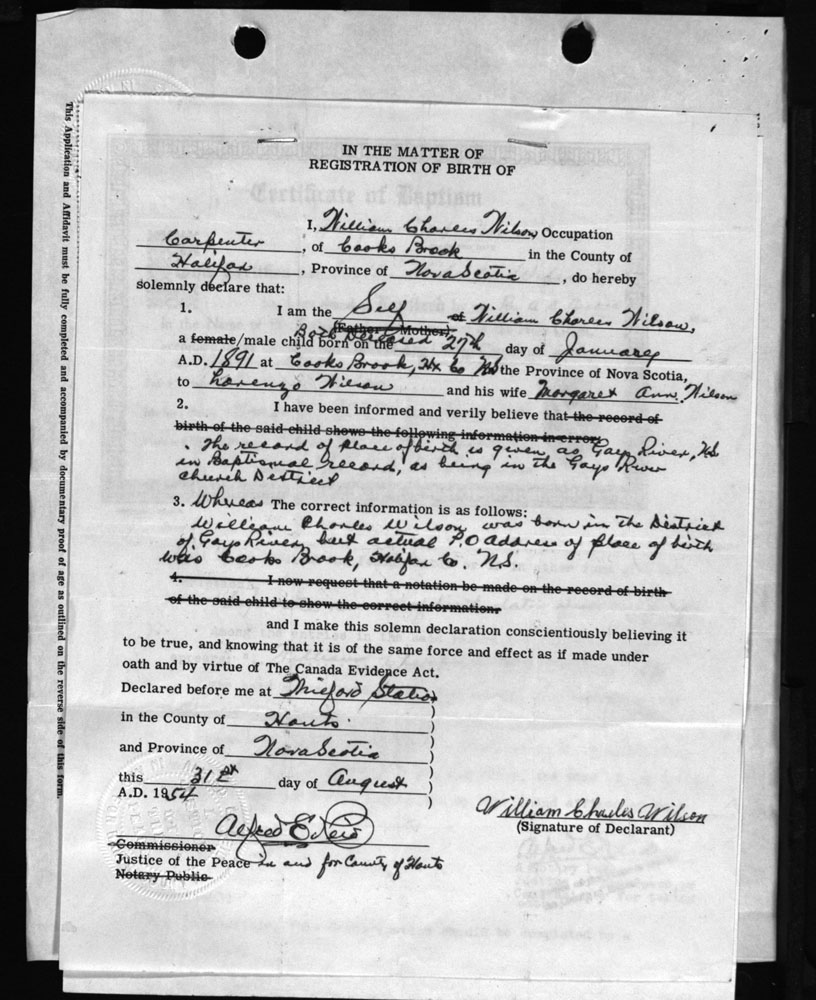 IN THE MATTER OF
REGISTRATION OF BIRTH OF
I, William Charles Wilson, Occupation
Carpenter, of Cooks Brook in the County of
Halifax, Province of Nova Scotia, do hereby
solemnly declare that:
1. I am the Self of William Charles Wilson,
(Father) (Mother)
Both Deceased
a female/male child born on the 27th day of January
A.D. 1891 at Cooks Brook, Hx Co NS the Province of Nova Scotia,
to Lorenzo Wilson and his wife Margaret Ann Wilson
2. I have been informed and verily believe that the record of
birth of the said child shows the following information in error:
The record of place of birth is given as Gays River, NS
in Baptismal record, as being in the Gays River
church District
3. Whereas The correct information is as follows:
William Charles Wilson was born in the District
of Gays River but actual P.O address of place of birth
was Cooks Brook, Halifax Co. N.S.
4. I now request that a notation be made on the record of birth
of the said child to show the correct information.
and I make this solemn declaration conscientiously believing it
to be true, and knowing that it is of the same force and effect as if made under
oath and by virtue of The Canada Evidence Act.
Declared before me at Milford Station
in the County of Hants
and Province of Nova Scotia
this 31st day of August
A.D. 1954
William Charles Wilson
(Signature of Declarant)
Alfred E. Reid
Commissioner
Justice of the Peace in and for County of Hants
Notary Public
This Application and Affidavit must be fully completed and accompanied by documentary proof of age as outlined on the reverse side of this form.
Certificate of Baptism